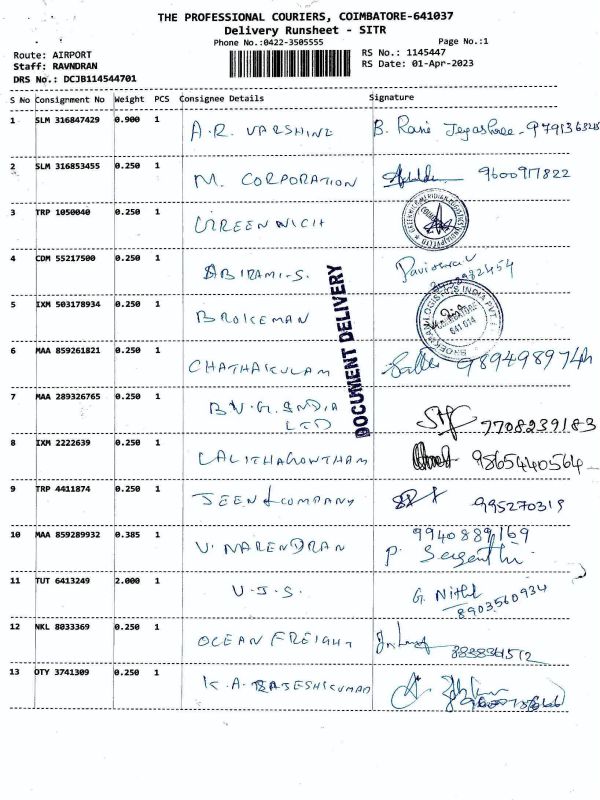 THE PROFESSIONAL COURIERS, COIMBATORE-641037
Delivery Runsheet - SITR
Phone No.:0422-3505555 Page No.:1
Route: AIRPORT RS No.: 1145447
Staff: RAVNDRAN RS Date: 01-Apr-2023
DRS No.: DCJB114544701
S No Consignment No Weight PCS Consignee Details Signature
1 SLM 316847429 0.900 1 A.R. VARSHINE B. Rani
2 SLM 316853455 0.250 1 M. CORPORATION 9600917822
3 TRP 1050040 0.250 1 GREENWICH
4 CDM 55217500 0.250 1 ABIRAMI-S.
5 IXM 503178934 0.250 1 BROKEMAN
6 MAA 859261821 0.250 1 CHATHAKULAM
7 MAA 289326765 0.250 1 B.V.G. INDIA
LTD 7708239183
8 IXM 2222639 0.250 1 LALITHAGOWTHAM 9865440564
9 TRP 4411874 0.250 1 JEEN & COMPANY 995270319
10 MAA 859289932 0.385 1 V. NARENDRAN 9940889169
11 TUT 6413249 2.000 1 V.J.S. G. 8903560934
12 NKL 8033369 0.250 1 OCEAN FREIGHT
13 OTY 3741309 0.250 1 K.A. RAJESHKUMAR
DOCUMENT DELIVERY